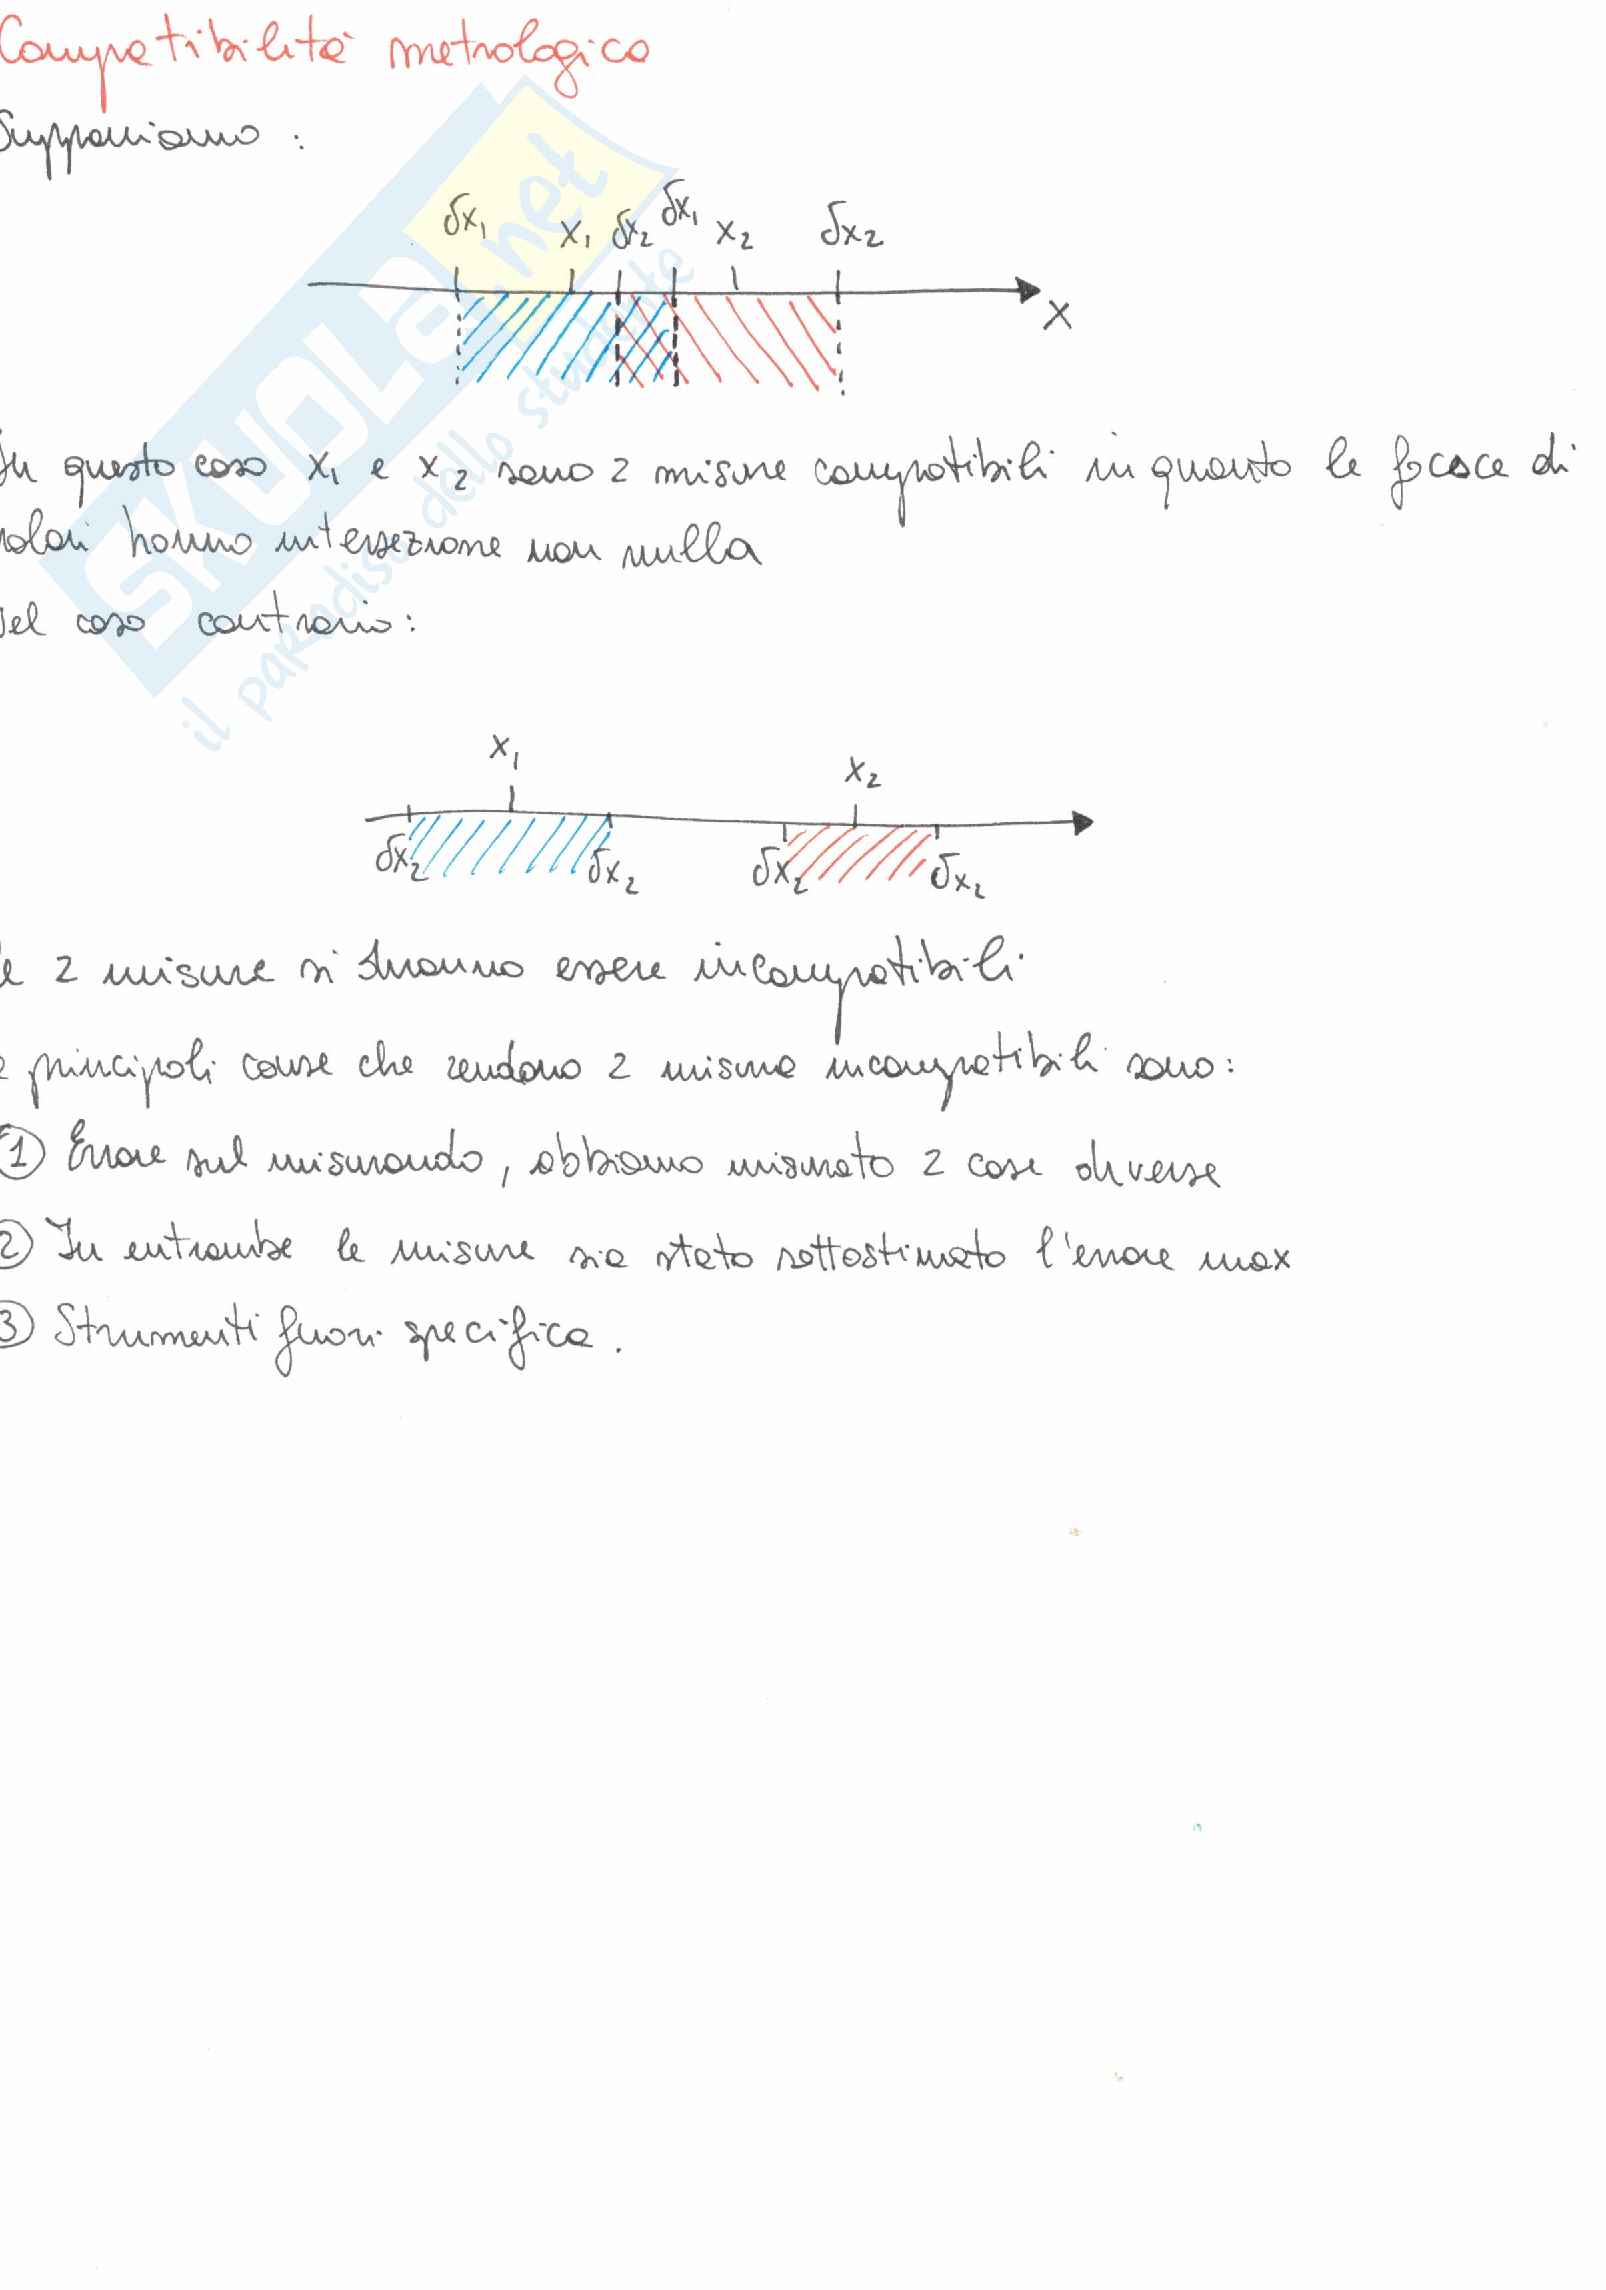 Compatibilità metrologica
Supponiamo :
δx₁ x₁ δx₂ δx₁ x₂ δx₂
x
In questo caso x₁ e x₂ sono 2 misure compatibili in quanto le fasce di
valori hanno intersezione non nulla
Nel caso contrario:
x₁ x₂
δx₂ δx₂ δx₂ δx₂
le 2 misure si diranno essere incompatibili
e principali cause che rendono 2 misure incompatibili sono:
① Errore sul misurando, abbiamo misurato 2 cose diverse
② In entrambe le misure sia stato sottostimato l'errore max
③ Strumenti fuori specifica.
SKUOLA.net
il paradiso dello studente